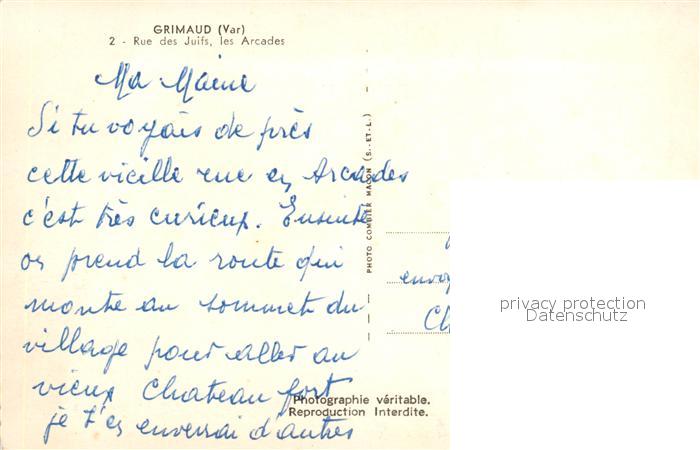 GRIMAUD (Var)
2 - Rue des Juifs, les Arcades
Ma
Si tu voyais de près
cette vieille rue en Arcades
c'est très curieux. Ensuite
on prend la route qui
monte au sommet du
village pour aller au
vieux Chateau fort
je t'en enverrai d'autres
PHOTO COMBIER MACON (S.-ET-L.)
envoy
Ch
privacy protection
Datenschutz
Photographie véritable.
Reproduction Interdite.